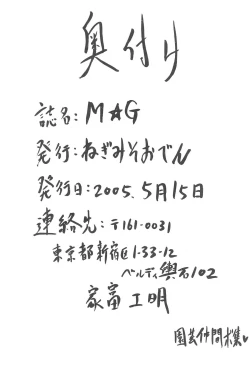 奥付け
誌名:M☆G
発行:ねぎみそおでん
発行日:2005.5月15日
連絡先:〒161-0031
東京都新宿区1-33-12
ベルディ輿石102
家富工明
園芸仲間大集♥